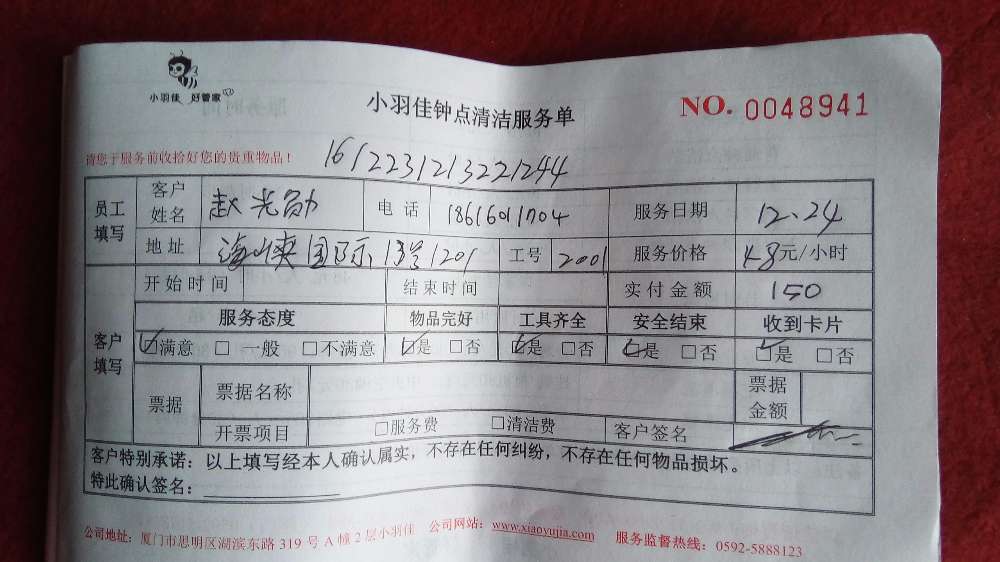 小羽佳 好管家
小羽佳钟点清洁服务单
NO. 0048941
请您于服务前收拾好您的贵重物品！
1612231213221244
员工填写 客户姓名 赵光勋 电话 18616011704 服务日期 12.24
地址 海峡国际 13号1201 工号 2001 服务价格 48元/小时
客户填写 开始时间 结束时间 实付金额 150
服务态度 物品完好 工具齐全 安全结束 收到卡片
☑满意 □一般 □不满意 ☑是 □否 ☑是 □否 ☑是 □否 ☑是 □否
票据 票据名称 票据金额
开票项目 □服务费 □清洁费 客户签名
客户特别承诺：以上填写经本人确认属实，不存在任何纠纷，不存在任何物品损坏。
特此确认签名：
公司地址：厦门市思明区湖滨东路 319 号 A 幢 2 层小羽佳 公司网站：www.xiaoyujia.com 服务监督热线：0592-5888123